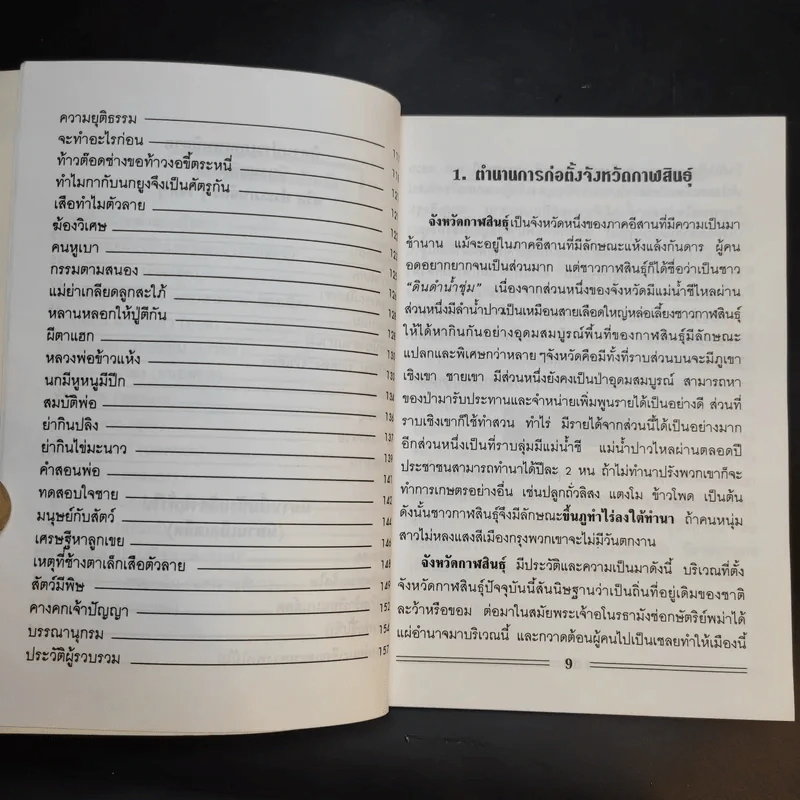 ความยุติธรรม
จะทำอะไรก่อน
ท้าวต๊อดช่างขอท้าวงอขี้ตระหนี่
ทำไมกากับนกยูงจึงเป็นศัตรูกัน
เสือทำไมตัวลาย
ฆ้องวิเศษ
คนหูเบา
กรรมตามสนอง
แม่ย่าเกลียดลูกสะใภ้
หลานหลอกให้ปู่ตีกัน
ผีตาแฮก
หลวงพ่อข้าวแห้ง 130
นกมีหูหนูมีปีก 133
สมบัติพ่อ 134
ย่ากินปลิง 136
ย่ากินไข่มะนาว 137
คำสอนพ่อ 139
ทดสอบใจชาย 141
มนุษย์กับสัตว์ 142
เศรษฐีหาลูกเขย 144
เหตุที่ช้างตาเล็กเสือตัวลาย 146
สัตว์มีพิษ 148
คางคกเจ้าปัญญา 149
บรรณานุกรม 153
ประวัติผู้รวบรวม 154
157
1. ตำนานการก่อตั้งจังหวัดกาฬสินธุ์
จังหวัดกาฬสินธุ์เป็นจังหวัดหนึ่งของภาคอีสานที่มีความเป็นมา
ช้านาน แม้จะอยู่ในภาคอีสานที่มีลักษณะแห้งแล้งกันดาร ผู้คน
อดอยากยากจนเป็นส่วนมาก แต่ชาวกาฬสินธุ์ก็ได้ชื่อว่าเป็นชาว
"ดินดำน้ำชุ่ม" เนื่องจากส่วนหนึ่งของจังหวัดมีแม่น้ำชีไหลผ่าน
ส่วนหนึ่งมีลำน้ำปาวเป็นเหมือนสายเลือดใหญ่หล่อเลี้ยงชาวกาฬสินธุ์
ให้ได้หากินกันอย่างอุดมสมบูรณ์พื้นที่ของกาฬสินธุ์มีลักษณะ
แปลกและพิเศษกว่าหลายๆจังหวัดคือมีทั้งที่ราบส่วนบนจะมีภูเขา
เชิงเขา ชายเขา มีส่วนหนึ่งยังคงเป็นป่าอุดมสมบูรณ์ สามารถหา
ของป่ามารับประทานและจำหน่ายเพิ่มพูนรายได้เป็นอย่างดี ส่วนที่
ราบเชิงเขาก็ใช้ทำสวน ทำไร่ มีรายได้จากส่วนนี้ได้เป็นอย่างมาก
อีกส่วนหนึ่งเป็นที่ราบลุ่มมีแม่น้ำชี แม่น้ำปาวไหลผ่านตลอดปี
ประชาชนสามารถทำนาได้ปีละ 2 หน ถ้าไม่ทำนาปรังพวกเขาก็จะ
ทำการเกษตรอย่างอื่น เช่นปลูกถั่วลิสง แตงโม ข้าวโพด เป็นต้น
ดังนั้นชาวกาฬสินธุ์จึงมีลักษณะขึ้นภูทำไร่ลงใต้ทำนา ถ้าคนหนุ่ม
สาวไม่หลงแสงสีเมืองกรุงพวกเขาจะไม่มีวันตกงาน
จังหวัดกาฬสินธุ์ มีประวัติและความเป็นมาดังนี้ บริเวณที่ตั้ง
จังหวัดกาฬสินธุ์ปัจจุบันนี้สันนิษฐานว่าเป็นถิ่นที่อยู่เดิมของชาติ
ละว้าหรือขอม ต่อมาในสมัยพระเจ้าอโนรธามังช่อกษัตริย์พม่าได้
แผ่อำนาจมาบริเวณนี้ และกวาดต้อนผู้คนไปเป็นเชลยทำให้เมืองนี้
9